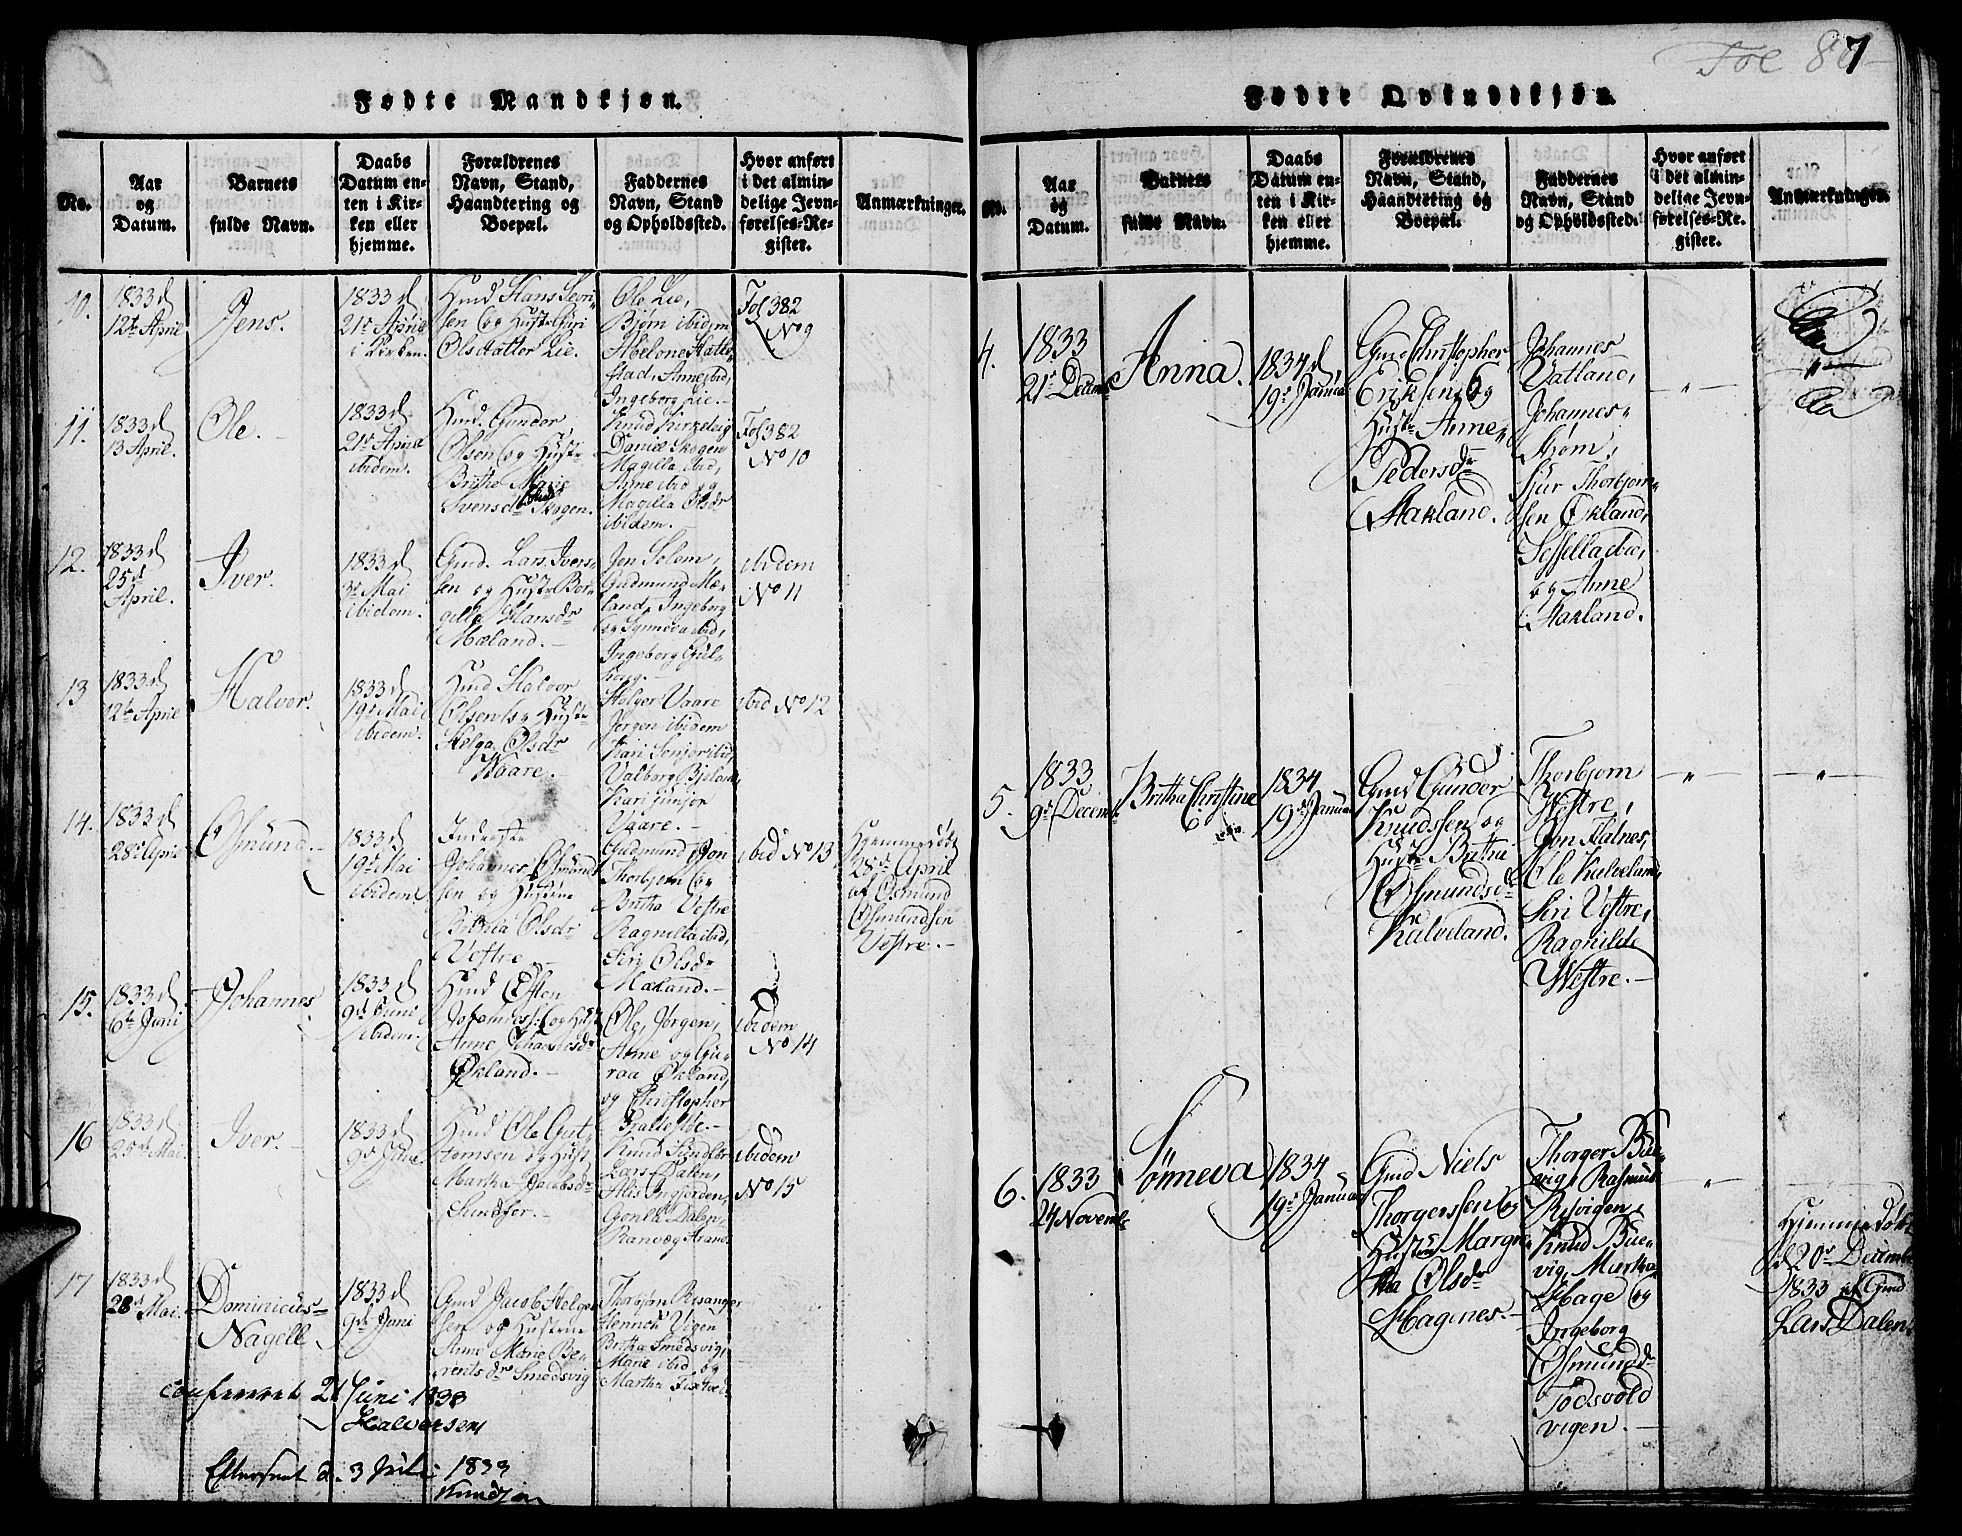 Fol 80
7
Fødte Mandkjøn.
No.
Aar
og
Datum.
Barnets
fulde Navn.
Daabs
Datum en-
ten i Kir-
ken eller
hjemme.
Forældrenes
Navn, Stand,
Haandtering og
Boepæl.
Faddernes
Navn, Stand
og Opholdssted.
Hvor anført
i det almin-
delige Jevn-
førelses-Re-
gister.
Anmærkninger.
10.
1833 d
12te April
Jens.
1833 d
21de April
i Kirken.
Hans
sen og Hust
Olsdatter Lie.
Ole Lie,
Bjørn ibidem
Abelone Hatte-
stad, Anne ibid,
Ingeborg Lie.
Fol 382
No 9
11.
1833 d
13 April.
Ole.
1833 d
21de April
ibidem.
Huusmd. Gunder
Olsen og Hustr
Brithe Marie
Svensdr Skogen.
Knud Kirkeleig
Daniel Skogen
Magilla ibid,
Anne ibid og
Magilla Olsdr
ibidem.
Fol 382
No 10
12.
1833 d
25d
April.
Iver.
1833 d
3de Mai
ibidem.
Gmd. Lars Ivers-
sen og Hustr Bor-
gille Hansdr
Mæland.
Jon Solem,
Gudmund Mæ-
land, Ingeborg
og Synneva ibid,
Ingeborg Gul-
berg.
ibidem
No 11
13
1833 d
12te April
Halvor.
1833 d
19de Mai
ibidem.
Halvor
Olsen og Hustr
Helga Olsdr
Vaare.
Holger Vaare
Jørgen ibidem
Kari Senior ibid,
Valborg Bjeland,
Kari junior
Vaare.
ibid No 12
14.
1833 d
28de April
Osmund.
1833 d
19de Mai
ibidem.
Inderste
Johannes Osmund-
sen og Hustrue
Britha Olsdr
Vestre
Gudmund, Jon
Thorbjørn og
Britha Vestre
Ragnilla ibid,
Siri Olsdr
Maland.
ibid No 13
Hjemmedøbt
28de April
af Osmund
Osmundsen
Vestre.
15.
1833 d
6te Juni
Johannes
1833 d
9de Juni
ibidem.
Huusmd Østen
Johanness: og Hust
Anne Johannesdr
Økland.
Ole, Jørgen,
Anne og Gu-
roa Økland,
og Christopher
ibidem
No 14
16
1833 d
25de Mai.
Iver.
1833 d
9de Juni
Ole Gut-
tomsen og Hust
Martha Jacobsdr
Sundfør.
Knud Sundfør
Lars Dalen,
Alis Ingjorden,
Gonla Dalen,
Ranveg Arann
ibidem
No 15
17
1833 d
28de Mai.
Dominicus
Nagell
1833 d
9de Juni
Gmd Jacob Helge-
sen og Hustrue
Anne Marie Be-
rentsdr Smedsvig
Thorbjørn Risanger
Henrich Vigen
Britha Smedsvig,
Marie ibid, og
Martha
confereret 21 Juni 1833
Halvorsen
Efterseet d. 3 Juli 1833
Knudsen
Fødte Qvindekjøn.
No.
Aar
og
Datum.
Barnets
fulde Navn.
Daabs
Datum en-
ten i Kir-
ken eller
hjemme.
Forældrenes
Navn, Stand,
Haandtering og
Boepæl.
Faddernes
Navn, Stand
og Opholdssted.
Hvor anført
i det almin-
delige Jevn-
førelses-Re-
gister.
Anmærkninger.
4.
1833
21de Decemb
Anna.
1834 d
19de Januar
Gmd Christopher
Eriksen og
Hustr Anne
Pedersdr
Hakland.
Johannes
Vatland,
Johannes
Strøm,
Sjur Thorbjørn-
sen Økland,
Sessella ibid,
og Anne
Hakland.
5.
1833
9de Decemb
Britha Christine
1834
19de Januar
Gmd Gunder
Knudssen og
Hustr Brithe
Osmundsdr
Kalveland.
Thorbjørn
Westre,
Jon Halnes,
Ole Kalveland,
Siri Vestre,
Ragnilde
Westre.
6.
1833
24 Novemb
Sønneva
1834
19de Januar
Gmd Niels
Thorgerssen og
Hustru Margre-
tha Olsdr
Hagenes.
Thorger Bue-
vig, Rasmus
Risvigen,
Knud Bue-
vig, Martha
Hage og
Ingeborg
Osmundsdr
Todsvold
vigen.
Hjemmedøbt
d 20de Decemb
1833 af Gmd
Lars Dalen.